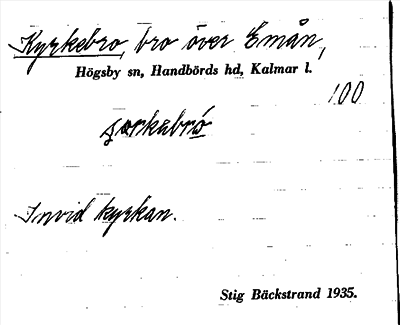 Kyrkebro, bro över Emån,
Högsby sn, Handbörds hd, Kalmar l.
100
Invid kyrkan.
Stig Bäckstrand 1935.